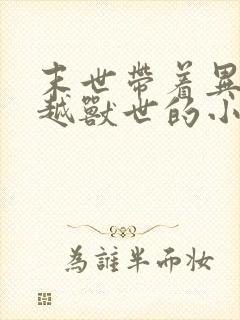 末世帶着異
越獸世的小
為誰半而妝